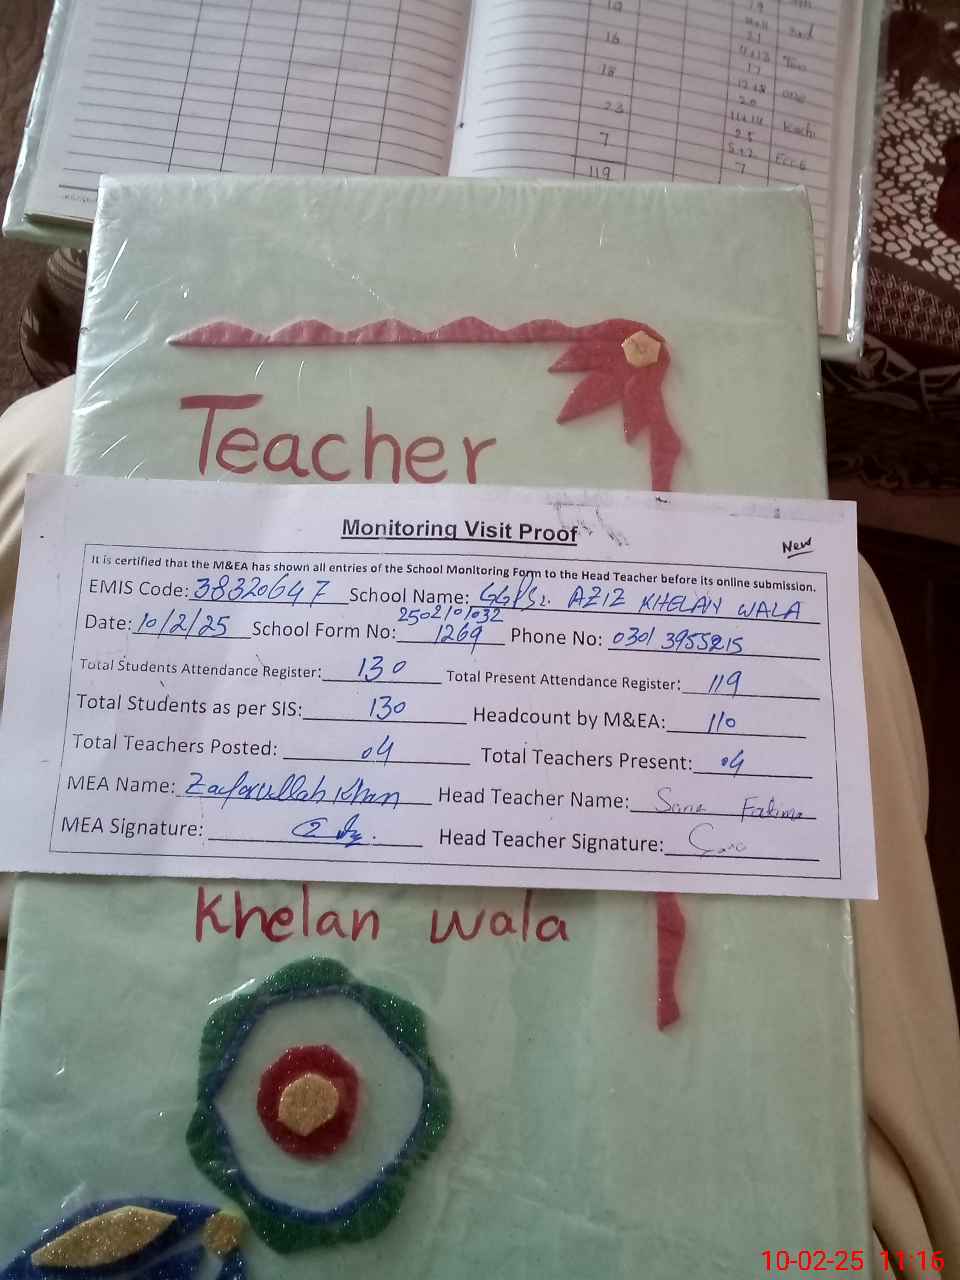 19
16
21
18
17
23
20
7
25
119
7
Teacher
Monitoring Visit Proof
New
It is certified that the M&EA has shown all entries of the School Monitoring Form to the Head Teacher before its online submission.
EMIS Code: 38320647 School Name: GGPS. AZIZ KHELAN WALA
2502101032
Date: 10/2/25 School Form No: 1269 Phone No: 0301 3955215
Total Students Attendance Register: 130 Total Present Attendance Register: 119
Total Students as per SIS: 130 Headcount by M&EA: 110
Total Teachers Posted: 04 Total Teachers Present: 04
MEA Name: Zafarullah Khan Head Teacher Name: Sana Fatima
MEA Signature: Head Teacher Signature: Sana
Khelan wala
10-02-25 11:16